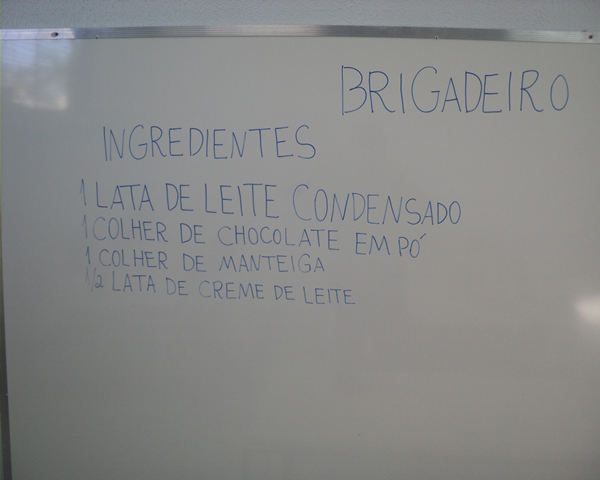 BRIGADEIRO
INGREDIENTES
1 LATA DE LEITE CONDENSADO
1 COLHER DE CHOCOLATE EM PÓ
1 COLHER DE MANTEIGA
1/2 LATA DE CREME DE LEITE